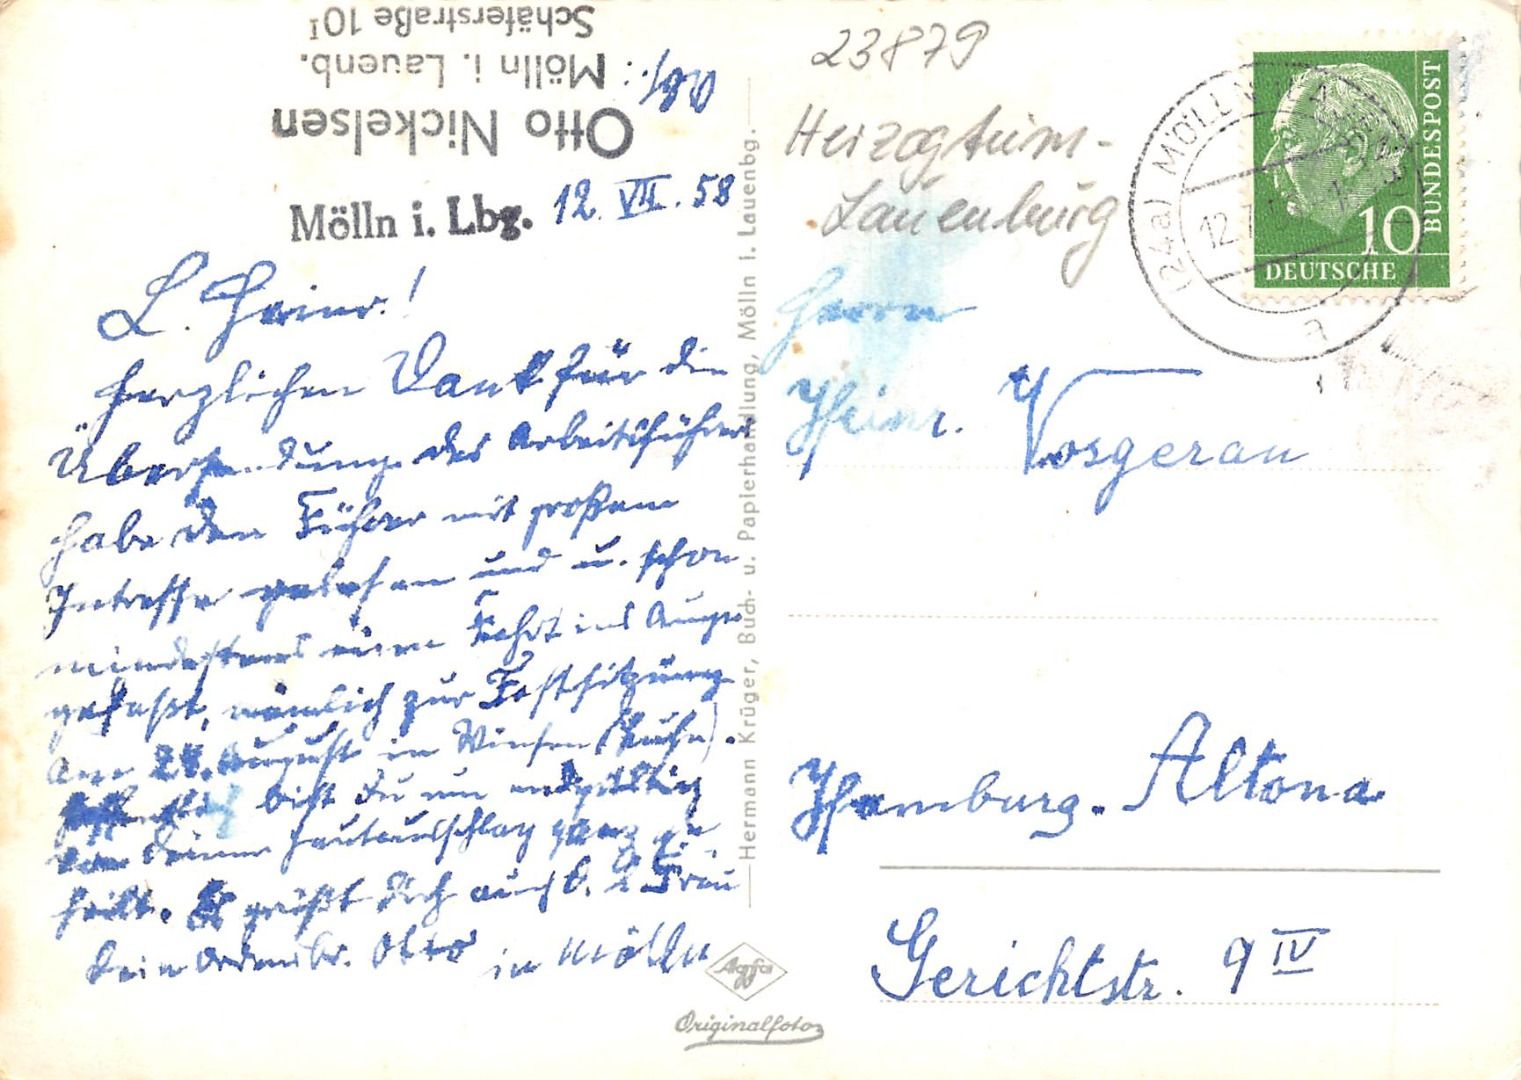 Otto Nickelsen
Mölln i. Lauenb.
Schäferstraße 10ᴵ
Abs.:
Mölln i. Lbg. 12. VII. 58
L. Heinr.!
Herzlichen Dank für die
Übersendung des Arbeitsführers
habe den Führer mit großem
Intresse gelesen und u. schon
mindestens eine Fahrt ins Auge
gefaßt, nämlich zur Festsitzung
am 24. August in Winsen (Luhe).
Hoffentlich bist Du nun endgültig
von Deinem Hautausschlag ganz ge-
heilt. Es grüßt Dich auch d. l. Frau
Dein Ordensbr. Otto in Mölln
Hermann Krüger, Buch- u. Papierhandlung, Mölln i. Lauenbg.
Agfa
Originalfoto
23879
Herzogtum-
Lauenburg
(24a) MÖLLN
12.7.
a
DEUTSCHE
BUNDESPOST
10
Herrn
Heinr. Vosgerau
Hamburg-Altona
Gerichtstr. 9 IV